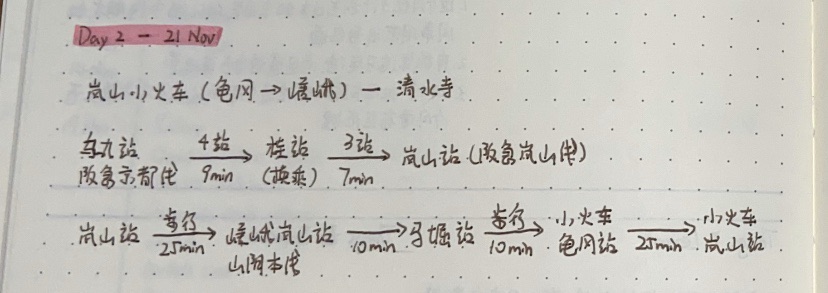 Day 2 — 21 Nov
岚山小火车（龟冈→嵯峨）— 清水寺
乌丸站 4站 桂站 3站 岚山站（阪急岚山线）
阪急京都线 9min （换乘） 7min
岚山站 步行 嵯峨岚山站 → 马堀站 步行 小火车 → 小火车
25min 山阴本线 10min 10min 龟冈站 25min 岚山站